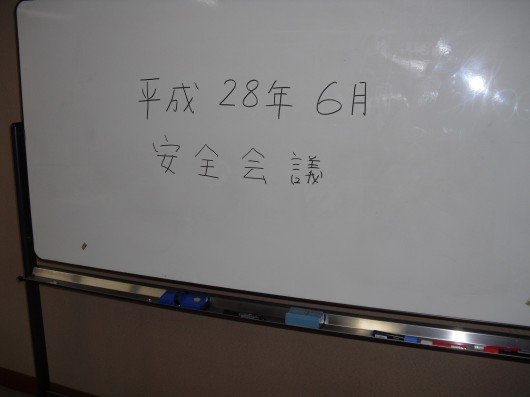 平成 28年 6月
安全会議